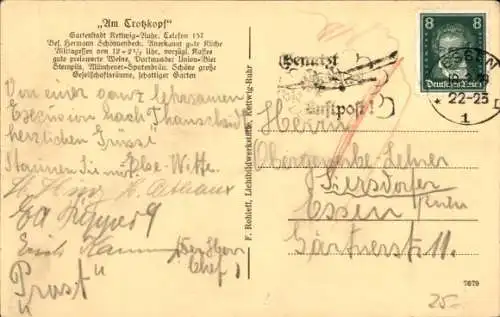 „Am Trotzkopf“
Gartenstadt Kettwig-Ruhr. Telefon 157
Bes. Hermann Schönnenbeck. Anerkannt gute Küche
Mittagessen von 12–2½ Uhr, vorzügl. Kaffee
gut gepflegte Weine, Dortmunder Union-Bier
Münchener-Spatenbräu. Schöne große
Gesellschaftsräume, schattiger Garten
Von einer ganz lehrsamen
Excursion nach
herzlichen Grüße!
Staunen Sie mal Else Witte
H. H.
Ed
Erich (Der Herr
Chef)
Prost"
F. Rohleff, Lichtbildwerkstätte, Kettwig-Ruhr
Benutzt
Luftpost!
8 8
Deutsches Reich
ESSEN
22-23
1
Herrn
Obergewerbe-Lehrer
Siersdorfer
Essen Ruhr
Gärtnerstr. 11.
7679
25.-